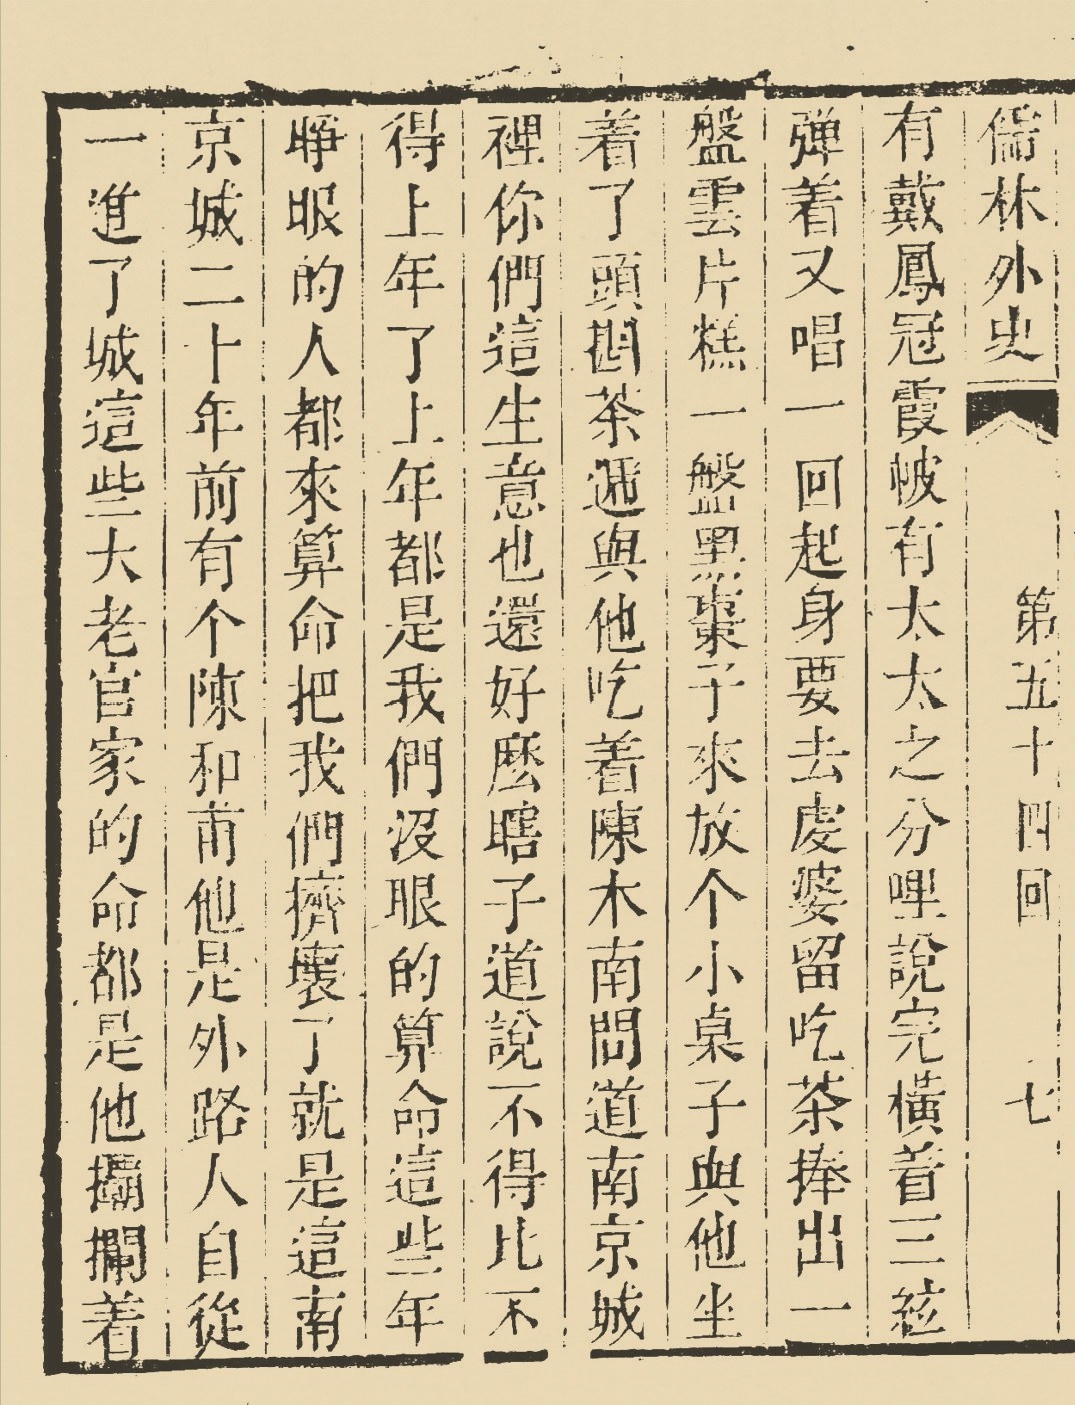 儒林外史 第五十四回 七
有戴鳳冠霞帔有太太之分哩說完橫着三絃
弹着又唱一回起身要去虔婆留吃茶捧出一
盤雲片糕一盤黑棗子來放个小桌子與他坐
着了頭斟茶遞與他吃着陳木南問道南京城
裡你們這生意也還好麽瞎子道說不得比不
得上年了上年都是我們沒眼的算命這些年
睜眼的人都來算命把我們擠壞了就是這南
京城二十年前有个陳和甫他是外路人自從
一進了城這些大老官家的命都是他攝攔着